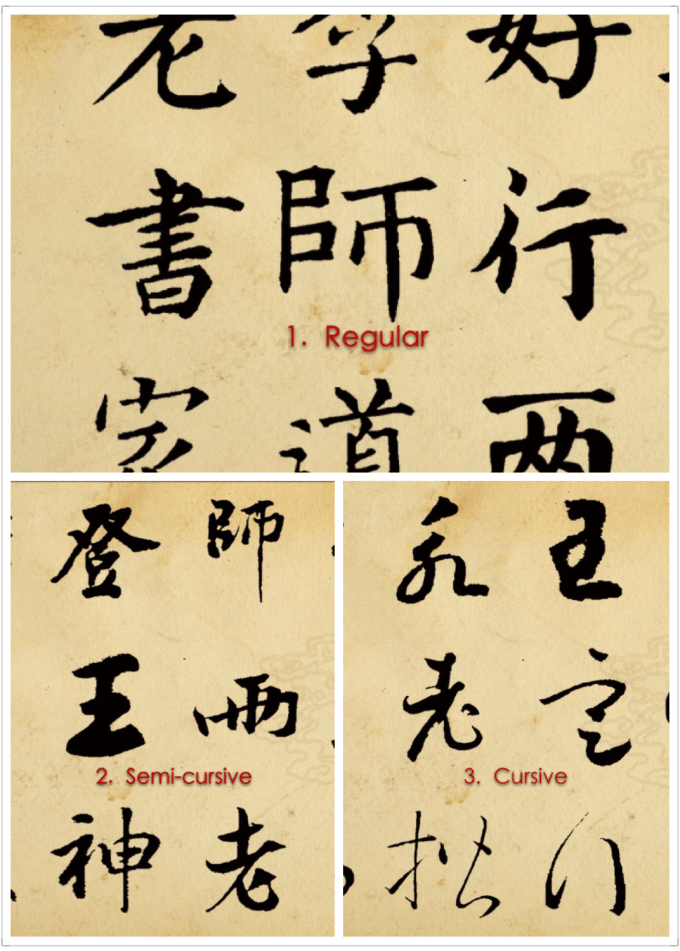 老 好
書 師 行
1. Regular
道 两
登 師
王 兩
2. Semi-cursive
神 老
永 王
老 定
3. Cursive
行